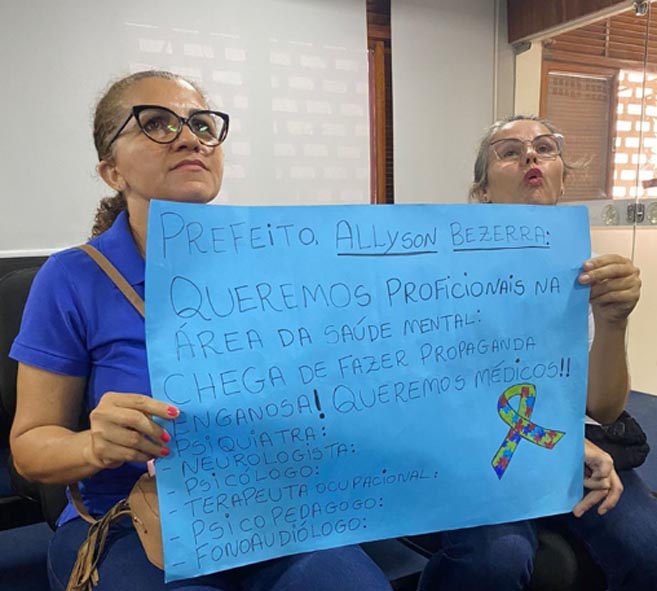 PREFEITO. ALLYSON BEZERRA:
QUEREMOS PROFICIONAIS NA
ÁREA DA SAÚDE MENTAL:
CHEGA DE FAZER PROPAGANDA
ENGANOSA! QUEREMOS MÉDICOS!!
PSIQUIATRA:
- NEUROLOGISTA:
- PSICÓLOGO:
- TERAPEUTA OCUPACIONAL:
- PSICOPEDAGOGO:
- FONOAUDIÓLOGO: